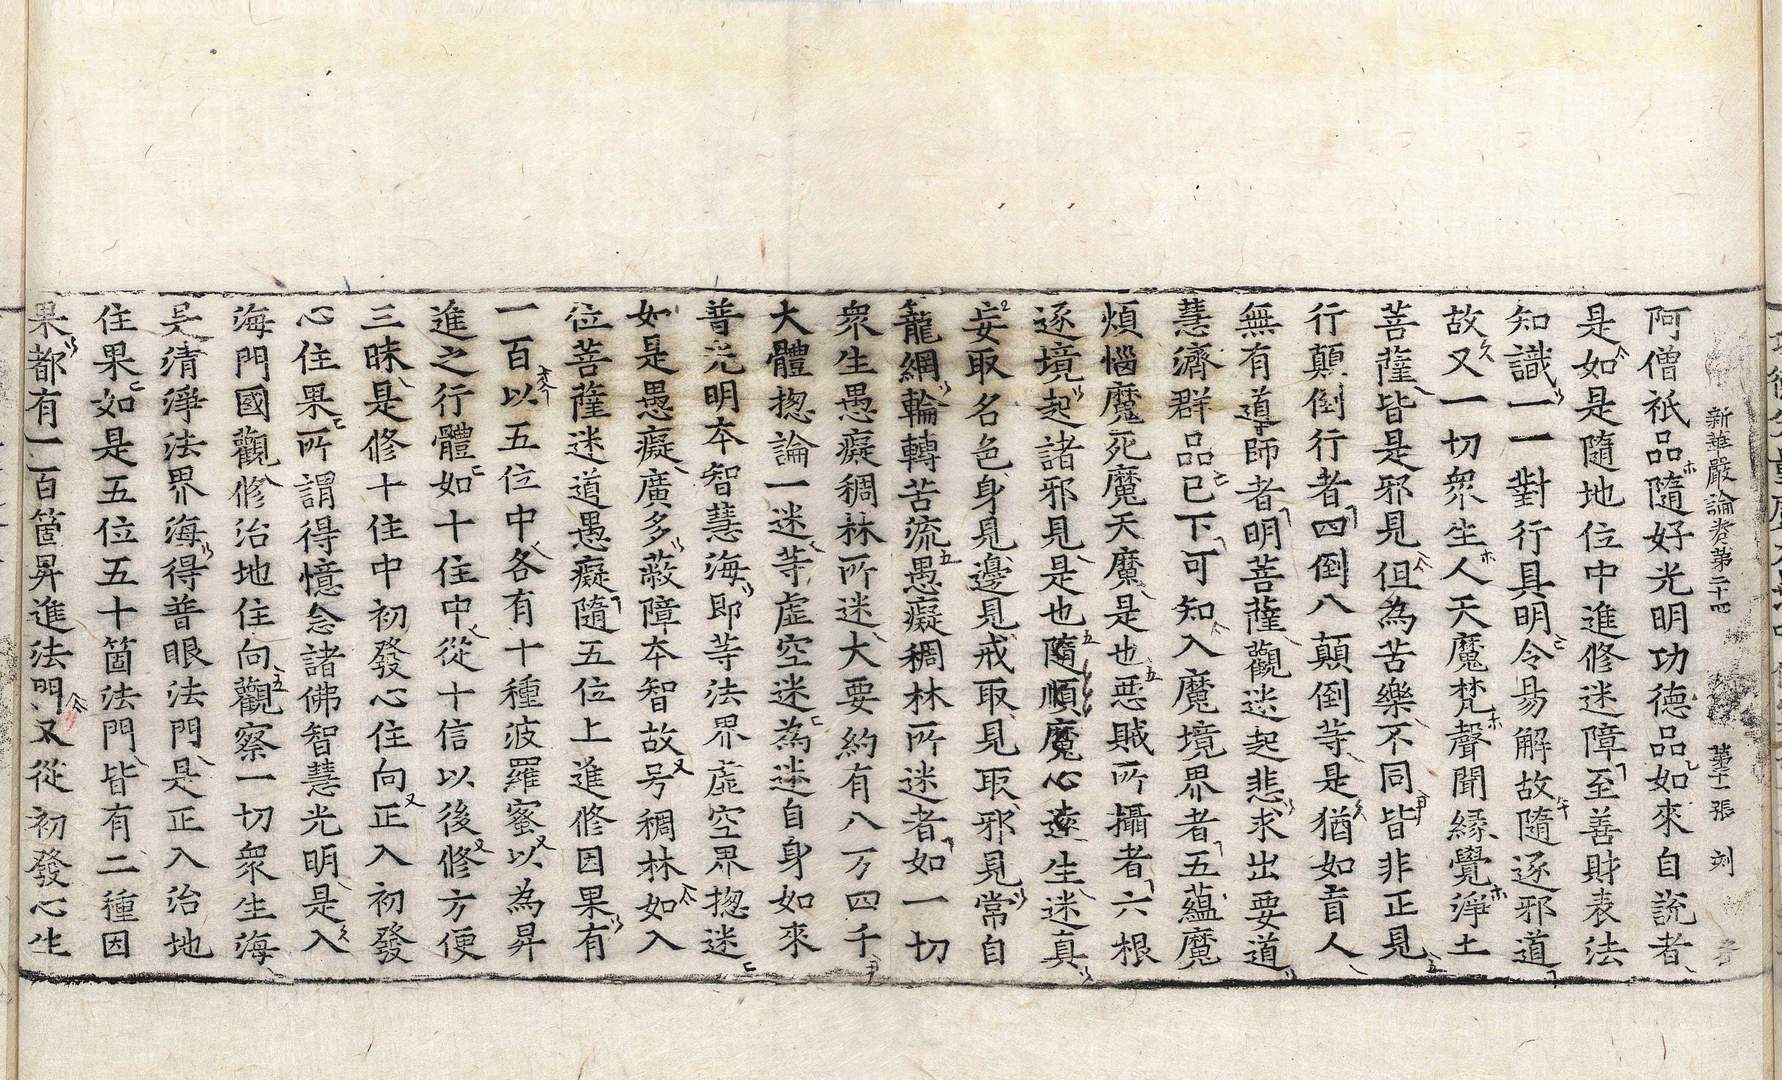 新華嚴論卷第二十四 第十一張 刻
阿僧祇品隨好光明功德品如來自說者
是如是隨地位中進修迷障至善財表法
知識一一對行具明令易解故隨逐邪道
故又一切衆生人天魔梵聲聞緣覺淨土
菩薩皆是邪見但為苦樂不同皆非正見
行顛倒行者四倒八顛倒等是猶如盲人
無有導師者明菩薩觀迷起悲求出要道
慧濟群品已下可知入魔境界者五蘊魔
煩惱魔死魔天魔是也惡賊所攝者六根
逐境起諸邪見是也隨順魔心遠生迷真
妄取名色身見邊見戒取見取邪見常自
籠網輪轉苦流愚癡稠林所迷者如一切
衆生愚癡稠林所迷大要約有八万四千
大體揔論一迷等虛空迷為迷自身如來
普光明本智慧海即等法界虛空界揔迷
如是愚癡廣多蔽障本智故号稠林如入
位菩薩迷道愚癡隨五位上進修因果有
一百以五位中各有十種波羅蜜以為昇
進之行體如十住中從十信以後修方便
三昧是修十住中初發心住向正入初發
心住果所謂得憶念諸佛智慧光明是入
海門國觀修治地住向觀察一切衆生海
是清淨法界海得普眼法門是正入治地
住果如是五位五十箇法門皆有二種因
果都有一百箇昇進法門又從初發心生